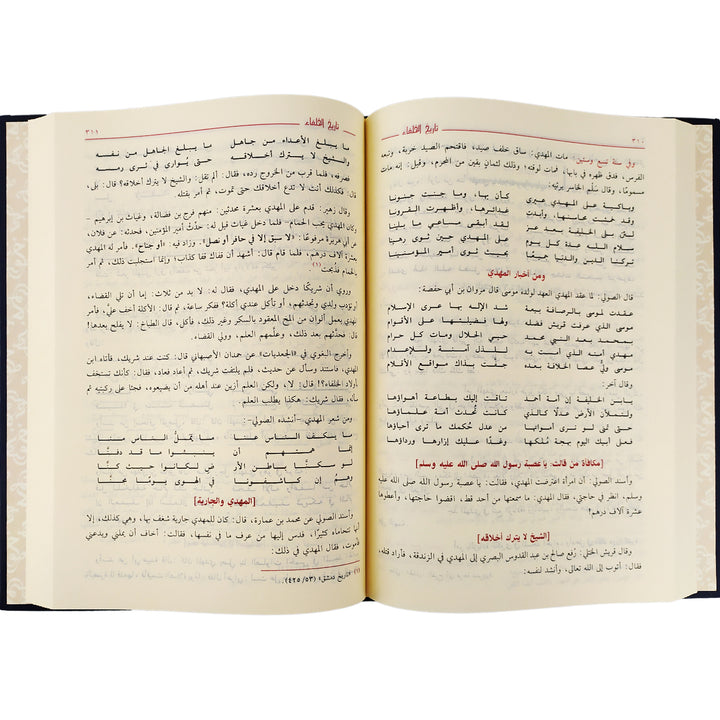 تاريخ الخلفاء
٣١٠
وفي سنة تسع وستين: مات المهدي: ساق خلف صيد، فاقتحم الصيد خربة، وتبعه
الفرس، فدق ظهره في بابها، فمات لوقته؛ وذلك لثمانٍ بقين من المحرم، وقيل: إنه مات
مسمومًا، وقال سلم الخاسر يرثيه:
وباكية على المهدي عبرى كأن بها، وما جنت جنونا
وقد خمشت محاسنها، وأبدت غدائرها، وأظهرت القرونا
لئن بلى الخليفة بعد عز لقد أبقى مساعي ما بلينا
سلام الله عدة كل يوم على المهدي حين ثوى رهينا
تركنا الدين والدنيا جميعًا بحيث ثوى أمير المؤمنينا
ومن أخبار المهدي
قال الصولي: لما عقد المهدي العهد لولده موسى قال مروان بن أبي حفصة:
عقدت لموسى بالرصافة بيعة شد الإله بها عرى الإسلام
موسى الذي عرفت قريش فضله ولها فضيلتها على الأقوام
بمحمد بعد النبي محمد حيي الحلال ومات كل حرام
مهدي أمته الذي أمست به للذل آمنة وللإعدام
موسى وليُّ عصا الخلافة بعده جفَّت بذاك مواقع الأقلام
وقال آخر:
يابن الخليفة إن أمة أحمد تاقت إليك بطاعة أهواؤها
ولتملأن الأرض عدلًا كالذي كانت تُحدث أمة علماؤها
حتى تمنى لو ترى أمواتها من عدل حكمك ما ترى أحياؤها
فعلى أبيك اليوم بهجة مُلكها وغدًا عليك إزارها ورداؤها
[مكافأة من قالت: يا عصبة رسول الله صلى الله عليه وسلم]
وأسند الصولي: أن امرأة اعترضت المهدي، فقالت: يا عصبة رسول الله صلى الله عليه
وسلم، انظر في حاجتي، فقال المهدي: ما سمعتها من أحد قط، اقضوا حاجتها، وأعطوها
عشرة آلاف درهم!
[الشيخ لا يترك أخلاقه]
وقال قريش الختلي: رفع صالح بن عبد القدوس البصري إلى المهدي في الزندقة، فأراد قتله،
فقال: أتوب إلى الله تعالى، وأنشد لنفسه:
تاريخ الخلفاء
٣١١
ما يبلغ الأعداء من جاهل ما يبلغ الجاهل من نفسه
والشيخ لا يترك أخلاقه حتى يُوارى في ثرى رمسه
فصرفه، فلما قرب من الخروج رده، فقال: ألم تقل: والشيخ لا يترك أخلاقه؟ قال: بلى،
قال: فكذلك أنت لا تدع أخلاقك حتى تموت، ثم أمر بقتله
وقال زهير: قدم على المهدي بعشرة محدثين: منهم فرج بن فضالة، وغياث بن إبراهيم -
وكان المهدي يحب الحمام- فلما دخل غياث قيل له: حدِّث أمير المؤمنين، فحدثه: عن فلان،
عن أبي هريرة مرفوعًا: «لا سبق إلا في حافر أو نصل». وزاد فيه: «أو جناح». فأمر له المهدي
بعشرة آلاف درهم، فلما قام قال: أشهد أن قفاك قفا كذاب؛ وإنما استجلبت ذلك، ثم أمر
بالحمام فذُبحت(١)
وروي أن شريكًا دخل على المهدي، فقال له: لا بد من ثلاث: إما أن تلي القضاء،
أو تؤدب ولدي وتحدثهم، أو تأكل عندي أكلة؟ ففكر ساعة، ثم قال: الأكلة أخف علي، فأمر
المهدي بعمل ألوان من المخ المعقود بالسكر وغير ذلك، فأكل، فقال الطباخ: لا يفلح بعدها!
قال: فحدَّثهم بعد ذلك، وعلَّمهم العلم، وولي القضاء.
وأخرج البغوي في «الجعديات» عن حمدان الأصبهاني قال: كنت عند شريك، فأتاه ابن
المهدي، فاستند وسأل عن حديث، فلم يلتفت شريك، ثم أعاد فعاد، فقال: كأنك تستخف
بأولاد الخلفاء؟! قال: لا، ولكن العلم أزين عند أهله من أن يضيعوه، فجثا على ركبتيه ثم
سأله، فقال شريك: هكذا يطلب العلم.
ومن شعر المهدي -أنشده الصولي-:
ما يكف الناس عنا ما يملُّ الناس منا
إنما همتهم أن ينبشوا ما قد دفنَّا
لو سكنَّا باطن الأر ض لكانوا حيث كنا
وهمُ إن كاشفونا في الهوى يومًا مجنا
[المهدي والجارية]
وأسند الصولي عن محمد بن عمارة، قال: كان للمهدي جارية شغف بها، وهي كذلك، إلا
أنها تتحاماه كثيرًا، فدس إليها من عرف ما في نفسها، فقالت: أخاف أن يملني ويدعني
فأموت، فقال المهدي في ذلك:
(١) «تاريخ دمشق» (٥٣/ ٤٢٥).